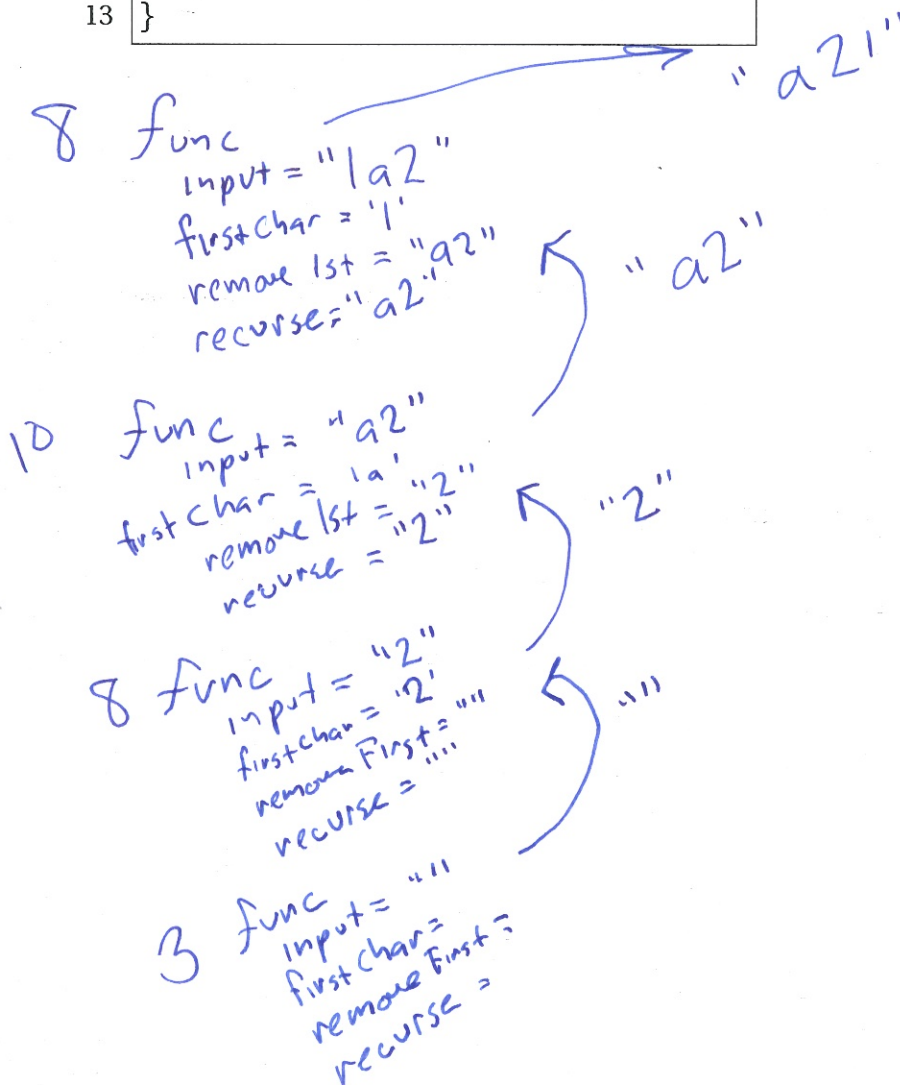 13 }
"a21"
8 func
input = "1a2"
firstChar = '1'
remove 1st = "a2"
recurse = "a2"
"a2"
10 func
input = "a2"
firstChar = 'a'
remove 1st = "2"
recurse = "2"
"2"
8 func
input = "2"
firstchar = '2'
remove First = ""
recurse = ""
""
3 func
input = ""
firstChar =
remove First =
recurse =